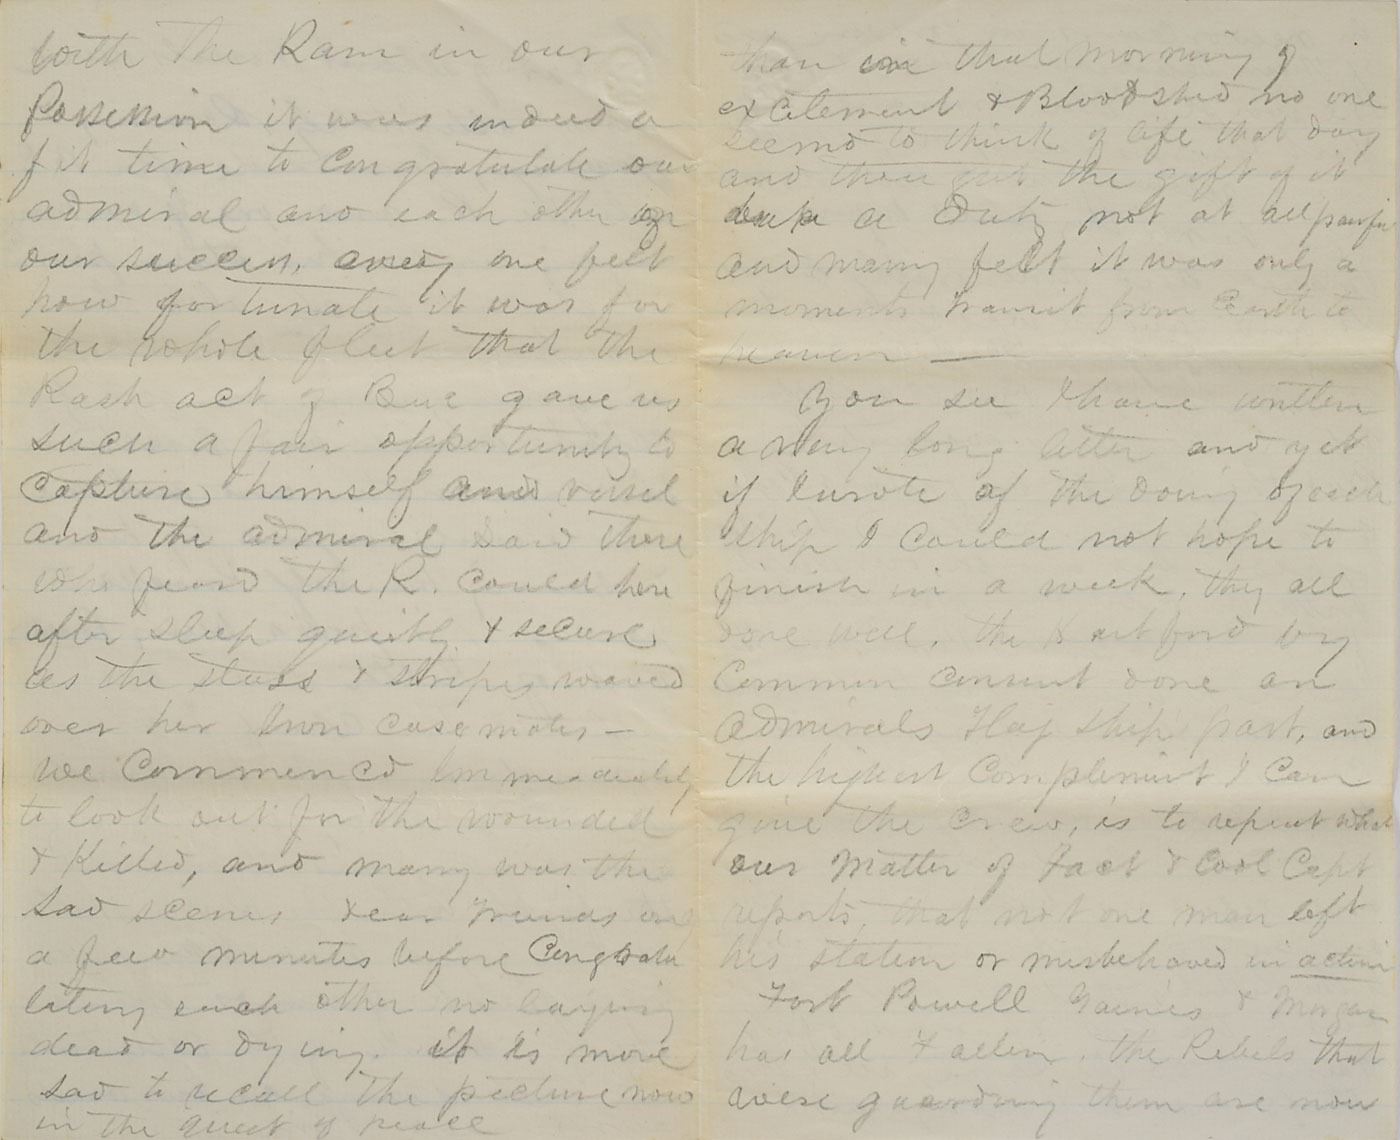 with the Ram in our
Possession it was indeed a
fit time to Congratulate our
admiral and each other on
our success, every one felt
how fortunate it was for
the whole fleet that the
Rash act of Buc gave us
such a fair opportunity to
Capture himself and vessel
and the admiral said those
who feard the R. Could here
after sleep quietly & secure
as the stars & stripes waved
over her Iron casemates —
we Commenced Immeadiately
to look out for the wounded
& Killed, and many was the
sad scenes dear friends only
a few minutes before Congratu
lating each other no laying
dead or dying. it is more
sad to recall the picture now
in the quiet of peace
than in that morning of
excitement & Bloodshed no one
seemd to think of life that day
and the gift of it
a Duty not at all painful
and many felt it was only a
moments transit from Earth to
heaven —
You see I have written
a very long letter and yet
if I wrote of the doing of each
ship I Could not hope to
finish in a week, they all
done well. the Hartford by
Common consent done an
admirals Flag ship part, and
the highest Compliment I Can
give the crew, is to repeat what
our Matter of Fact & Cool Capt
reports, that not one man left
his station or misbehaved in action
Fort Powell Gaines & Morgan
has all fallen. the Rebels that
were guarding them are now